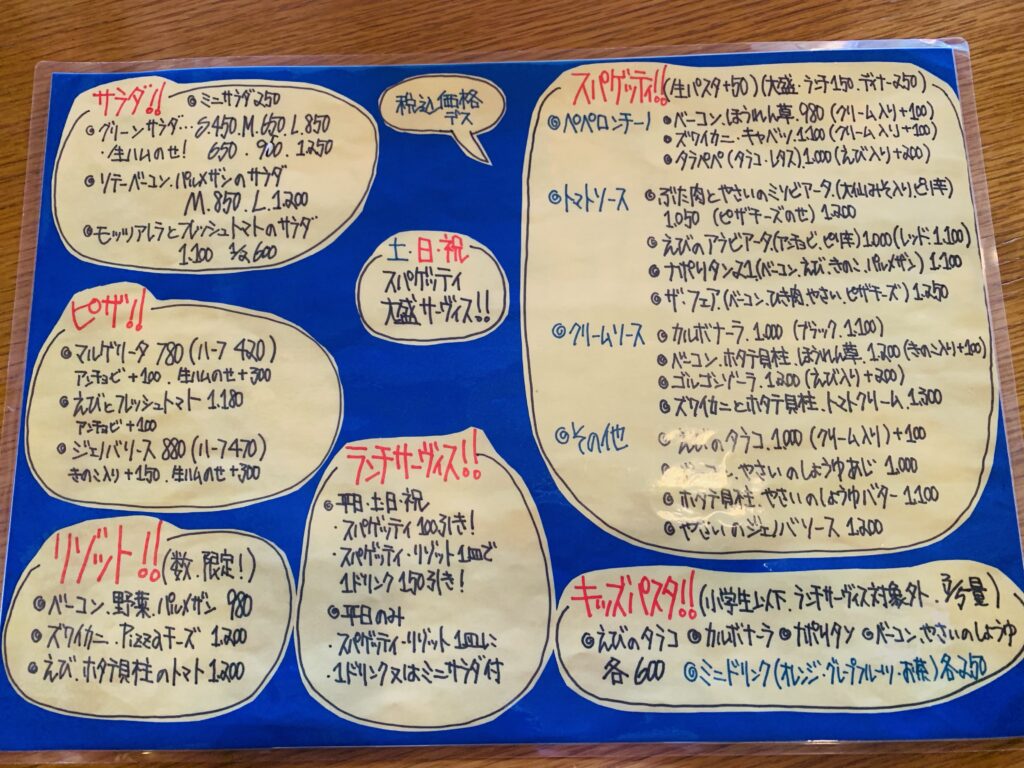 サラダ!! ◎ミニサラダ250
◎グリーンサラダ…S.450.M.650.L.850
・生ハムのせ! 650.900.1250
◎リテーベーコン.パルメザンのサラダ
M.850.L.1.200
◎モッツアレラとフレッシュトマトのサラダ
1.100 1/2 600
税込価格
デス
土・日・祝
スパゲッティ
大盛サーヴィス!!
ピザ!!
◎マルゲリータ 780(ハーフ 420)
アンチョビ+100.生ハムのせ+300
◎えびとフレッシュトマト 1.180
アンチョビ+100
◎ジェノバソース 880(ハーフ470)
きのこ入り+150.生ハムのせ+300
リゾット!!(数.限定!)
◎ベーコン.野菜.パルメザン 980
◎ズワイカニ.Pizzaチーズ 1.200
◎えび.ホタテ貝柱のトマト 1.200
ランチサーヴィス!!
◎平日・土日・祝
・スパゲッティ 100引き!
・スパゲッティ・リゾット 1皿で
1ドリンク 150引き!
◎平日のみ
・スパゲッティ・リゾット 1皿に
・1ドリンク又はミニサラダ付
スパゲッティ!!(生パスタ+50)(大盛・ランチ150.ディナー250)
◎ペペロンチーノ ◎ベーコン.ほうれん草.980(クリーム入り+100)
◎ズワイカニ・キャベツ.1.100(クリーム入り+100)
◎タラペペ(タラコ・レタス)1.000(えび入り+200)
◎トマトソース ◎ぶた肉とやさいのミソビアータ.(大山みそ入り.ピリ辛)
1.050 (ピザチーズのせ)1.200
◎えびのアラビアータ(アンチョビ.ピリ辛)1.000(レッド.1.100)
◎ナポリタン21(ベーコン.えび.きのこ.パルメザン)1.100
◎ザ・フェア.(ベーコン.ひき肉.やさい.ピザチーズ)1.250
◎クリームソース ◎カルボナーラ.1.000 (ブラック.1.100)
◎ベーコン.ホタテ貝柱.ほうれん草.1.200(きのこ入り+100)
◎ゴルゴンゾーラ.1.200(えび入り+200)
◎ズワイカニとホタテ貝柱.トマトクリーム.1.300
◎その他 ◎えびのタラコ.1.000 (クリーム入り)+100
◎ベーコン.やさいのしょうゆあじ 1.000
◎ホタテ貝柱.やさいのしょうゆバター 1.100
◎やさいのジェノバソース 1.200
キッズパスタ!!(小学生以下.ランチサーヴィス対象外.3/5量)
◎えびのタラコ ◎カルボナーラ ◎ナポリタン ◎ベーコン.やさいのしょうゆ
各600 ◎ミニドリンク(オレンジ・グレープフルーツ・お茶)各250